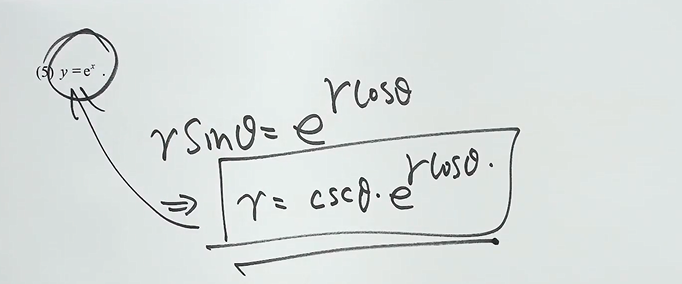 (5) y = eˣ .
r sinθ = e^{r cosθ}
⇒ r = cscθ · e^{r cosθ} .